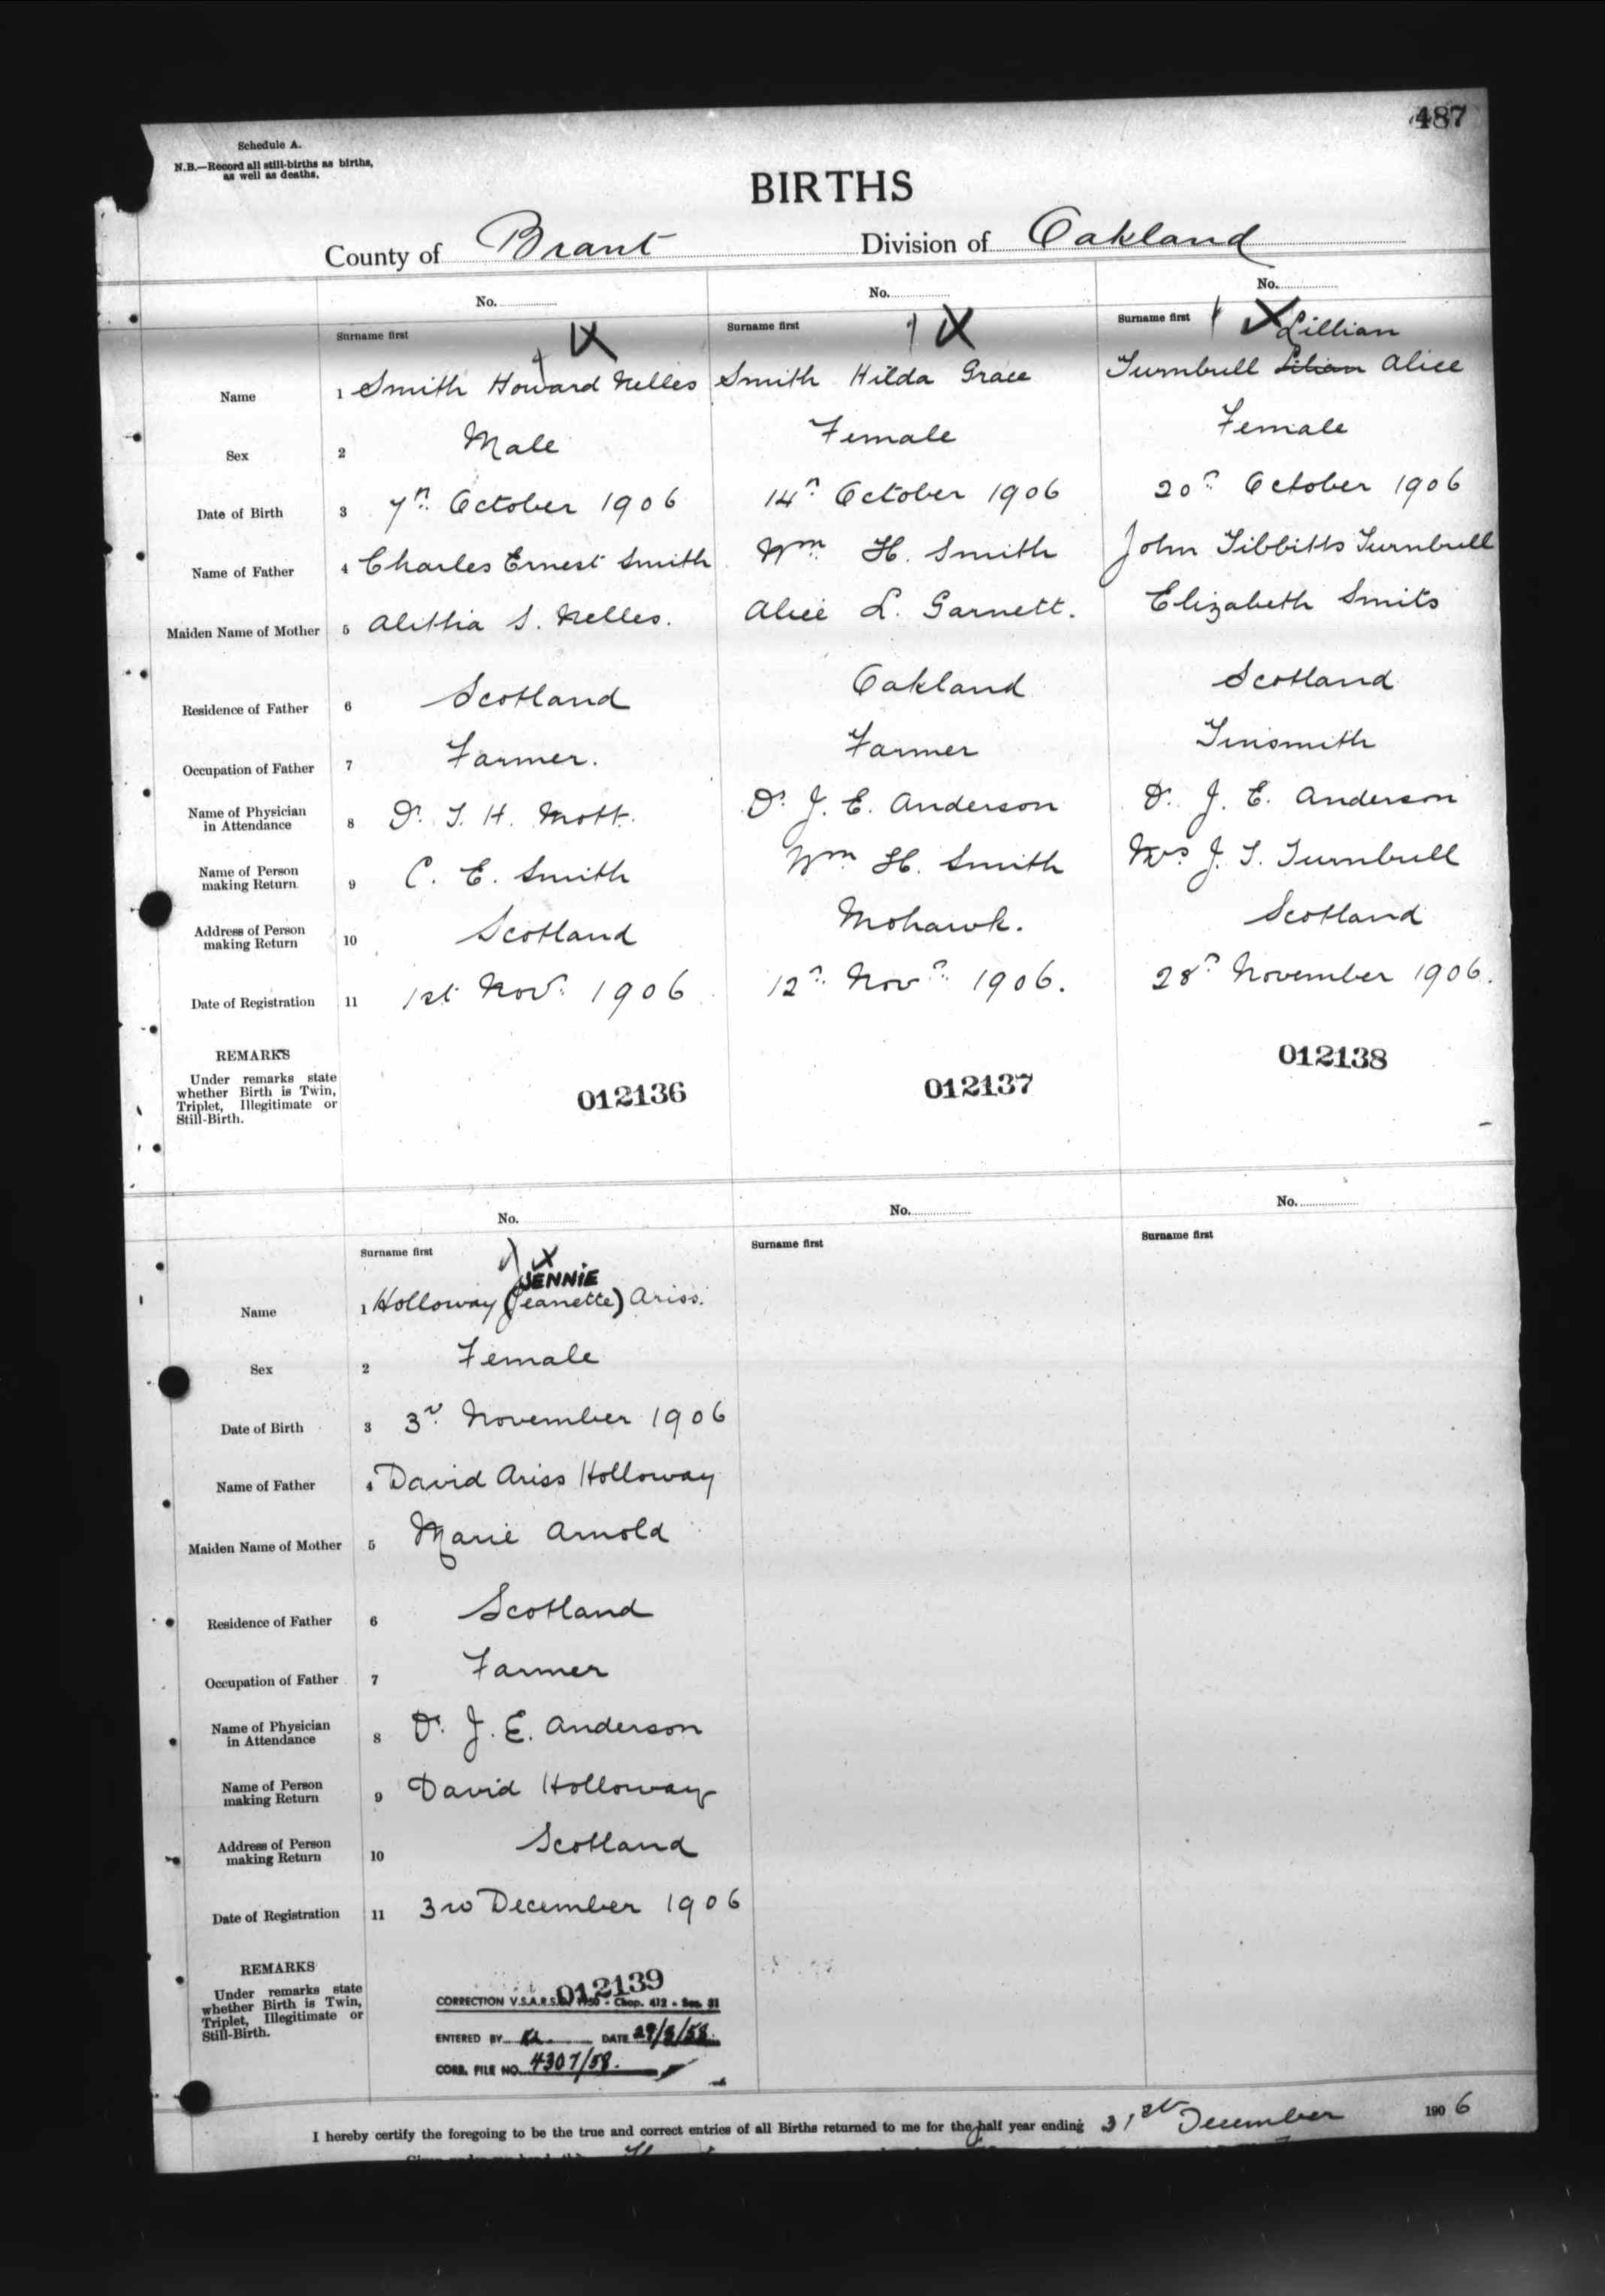 487
Schedule A.
N.B.—Record all still-births as births,
as well as deaths.
BIRTHS
County of Brant Division of Oakland
No. No. No.
Surname first Surname first Surname first
Lillian
Name 1 Smith Howard Nelles Smith Hilda Grace Turnbull Lilian Alice
Sex 2 Male Female Female
Date of Birth 3 7th October 1906 14th October 1906 20th October 1906
Name of Father 4 Charles Ernest Smith Wm H. Smith John Tibbitts Turnbull
Maiden Name of Mother 5 Alithia S. Nelles. Alice L. Garnett. Elizabeth Smits
Residence of Father 6 Scotland Oakland Scotland
Occupation of Father 7 Farmer. Farmer Tinsmith
Name of Physician
in Attendance 8 Dr. T. H. Mott. Dr. J. E. Anderson Dr. J. E. Anderson
Name of Person
making Return 9 C. E. Smith Wm H. Smith Mrs. J. T. Turnbull
Address of Person
making Return 10 Scotland Mohawk. Scotland
Date of Registration 11 1st Nov. 1906 12th Novr. 1906. 28th November 1906.
REMARKS
Under remarks state
whether Birth is Twin,
Triplet, Illegitimate or
Still-Birth.
012136 012137 012138
No. No. No.
Surname first Surname first Surname first
JENNIE
Name 1 Holloway (Jeanette) Ariss.
Sex 2 Female
Date of Birth 3 3rd November 1906
Name of Father 4 David Ariss Holloway
Maiden Name of Mother 5 Marie Arnold
Residence of Father 6 Scotland
Occupation of Father 7 Farmer
Name of Physician
in Attendance 8 Dr. J. E. Anderson
Name of Person
making Return 9 David Holloway
Address of Person
making Return 10 Scotland
Date of Registration 11 3rd December 1906
REMARKS
Under remarks state
whether Birth is Twin,
Triplet, Illegitimate or
Still-Birth.
012139
CORRECTION V.S.A.R.S.O. 1950 - Chap. 412 - Sec. 31
ENTERED BY DATE
CORR. FILE NO. 4307/58.
I hereby certify the foregoing to be the true and correct entries of all Births returned to me for the half year ending 31st December 1906